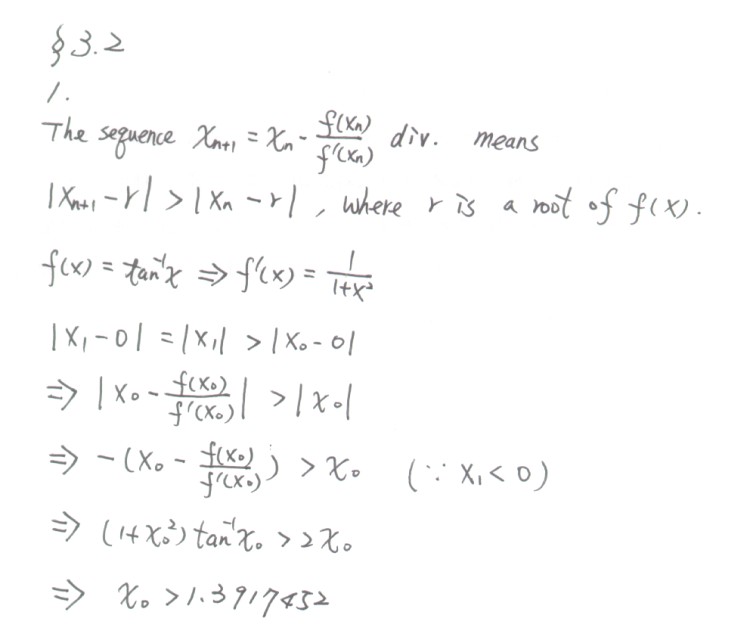 §3.2
1.
The sequence Xₙ₊₁ = Xₙ - f(Xₙ)/f'(Xₙ) div. means
|Xₙ₊₁ - r| > |Xₙ - r|, where r is a root of f(x).
f(x) = tan⁻¹x ⇒ f'(x) = 1/(1+x²)
|X₁ - 0| = |X₁| > |X₀ - 0|
⇒ |X₀ - f(X₀)/f'(X₀)| > |X₀|
⇒ -(X₀ - f(X₀)/f'(X₀)) > X₀ (∵ X₁ < 0)
⇒ (1+X₀²) tan⁻¹X₀ > 2X₀
⇒ X₀ > 1.3917452